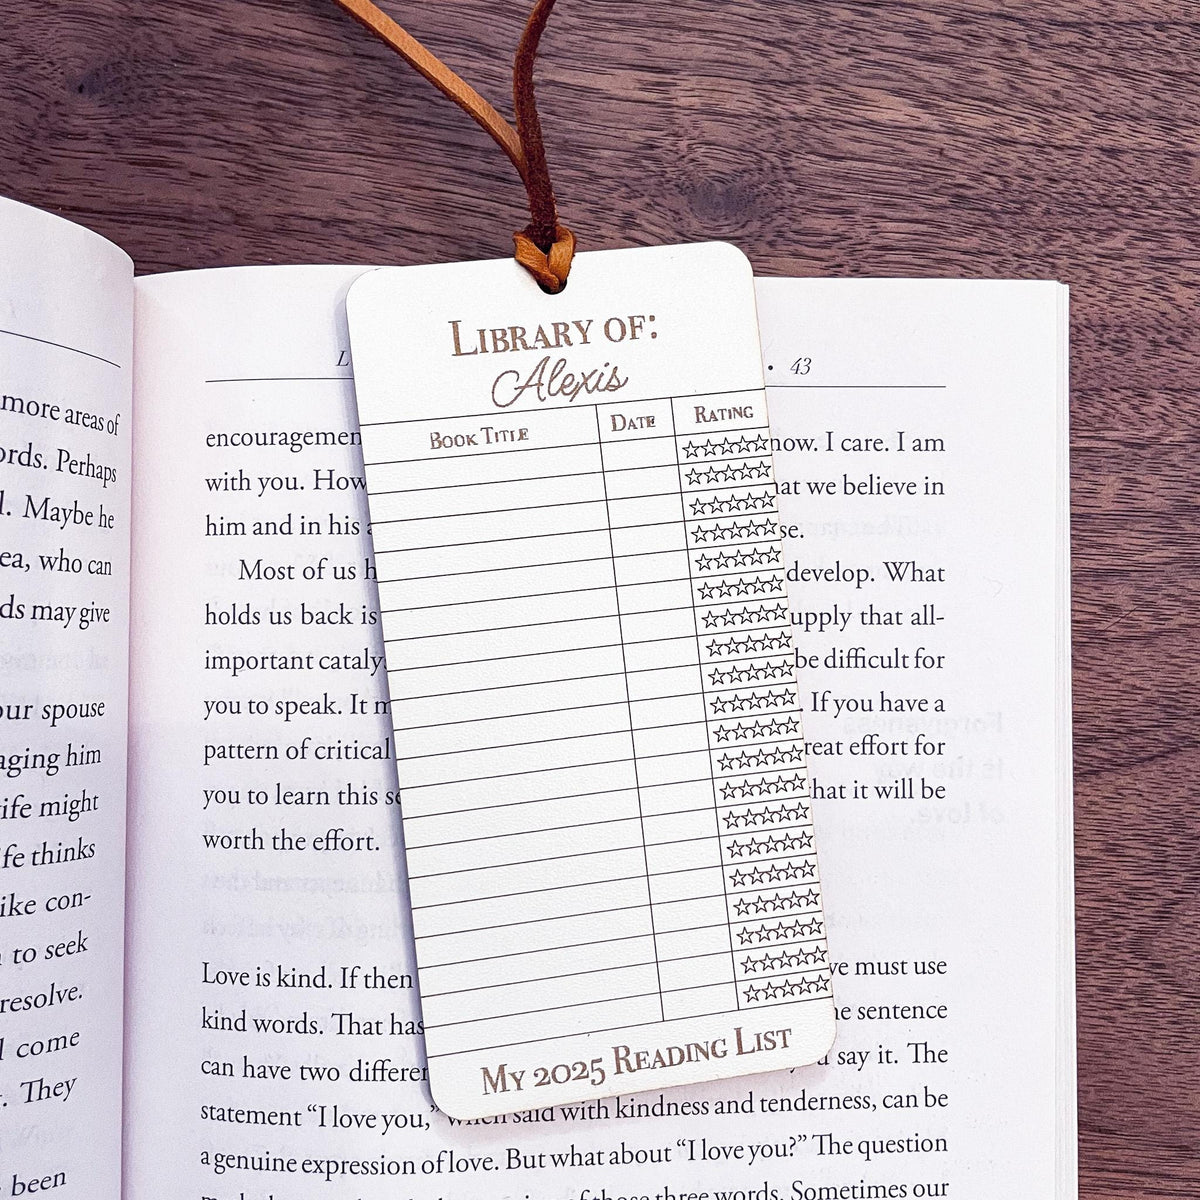 more areas of
Perhaps
Maybe he
who can
may give
spouse
him
might
thinks
con-
to seek
resolve.
come
They
been
43
encouragemen
with you. How
him and in his
Most of us h
holds us back is
important cataly
you to speak. It
pattern of critical
you to learn this
worth the effort.
Love is kind. If then
kind words. That has
can have two differen
statement “I love you,” when said with kindness and tenderness, can be
a genuine expression of love. But what about “I love you?” The question
of those three words. Sometimes our
now. I care. I am
we believe in
develop. What
that all-
be difficult for
If you have a
effort for
that it will be
must use
sentence
say it. The
LIBRARY OF:
Alexis
BOOK TITLE DATE RATING
MY 2025 READING LIST